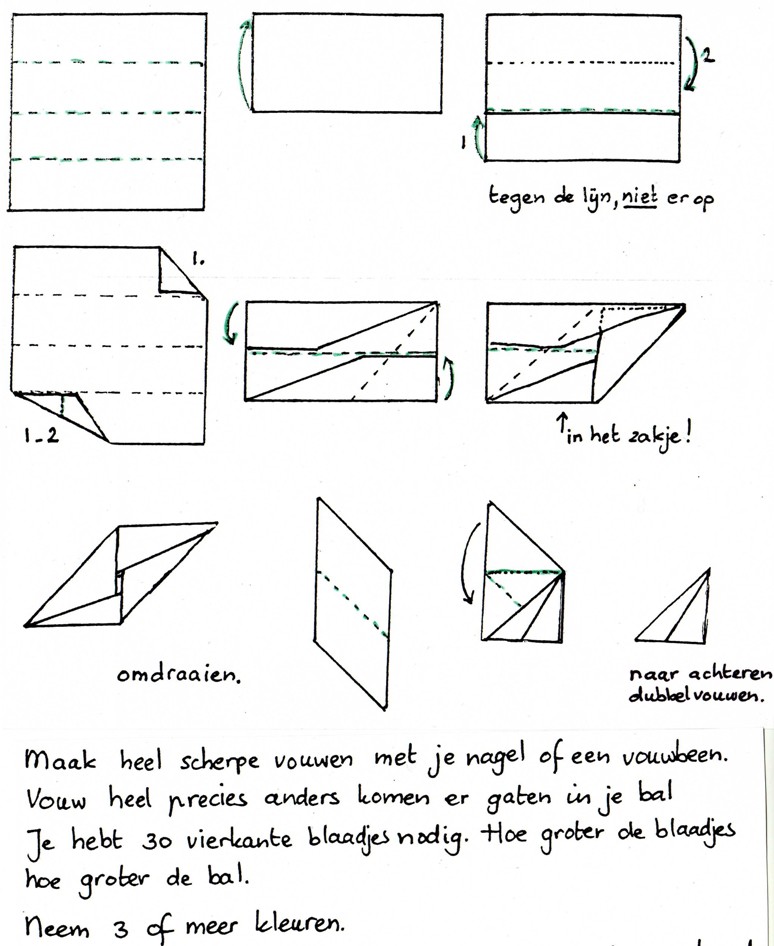 2
1
tegen de lijn, niet er op
1.
1-2
in het zakje!
omdraaien.
naar achteren
dubbelvouwen.
Maak heel scherpe vouwen met je nagel of een vouwbeen.
Vouw heel precies anders komen er gaten in je bal
Je hebt 30 vierkante blaadjes nodig. Hoe groter de blaadjes
hoe groter de bal.
Neem 3 of meer kleuren.